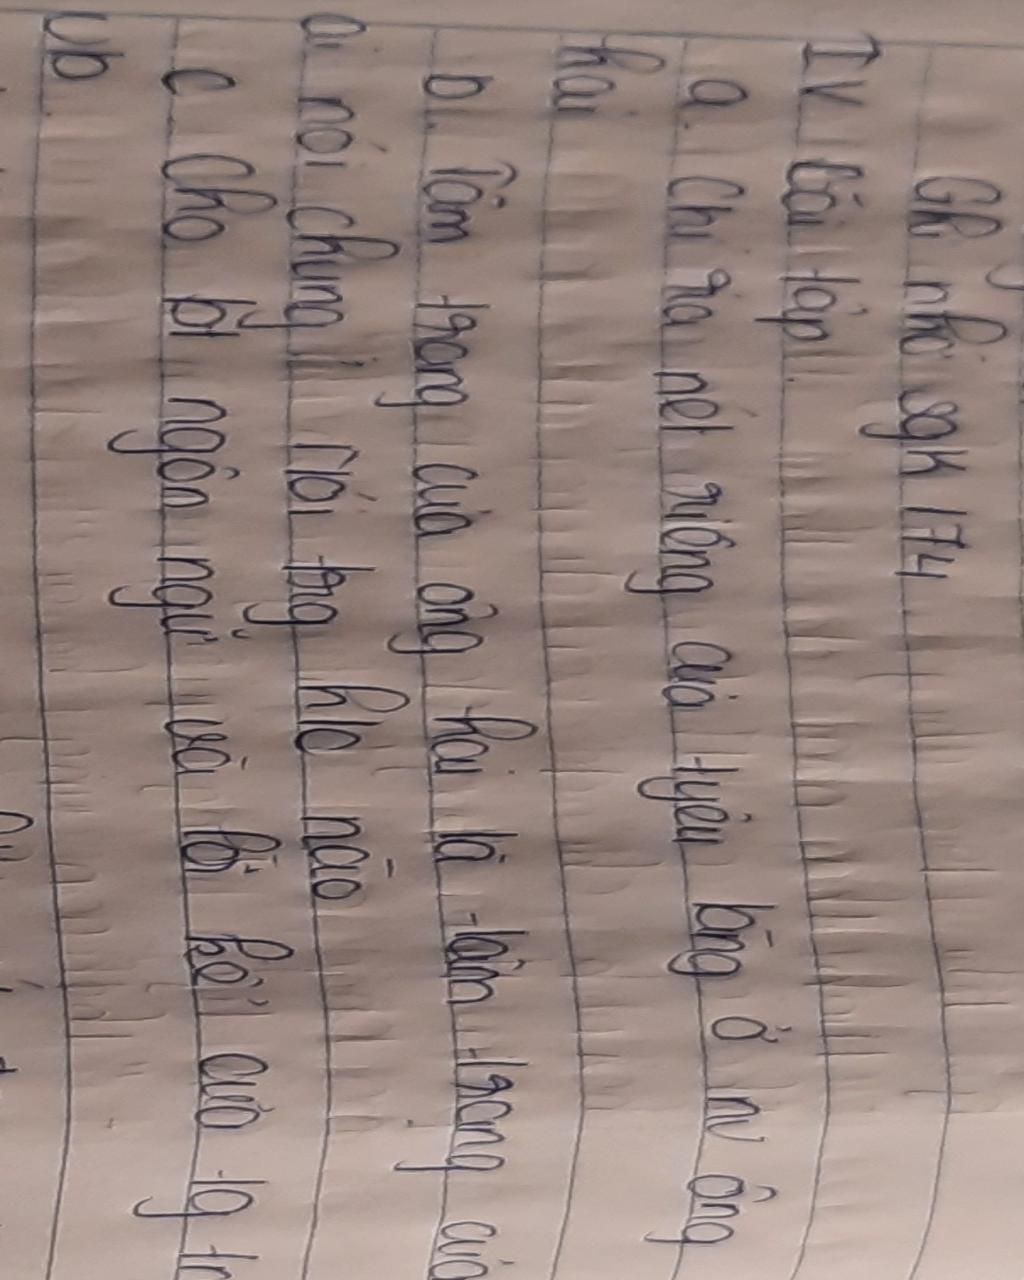 Ghi nhớ sgk 174
IV. Bài tập
a. Chỉ ra nét riêng của tyêu làng ở nv ông
hai
b. Tâm trạng của ông hai là tâm trạng của
a nói chung
nói trg h/c nào
c Cho bt ngôn ngữ và lời kể của tg tr
vb